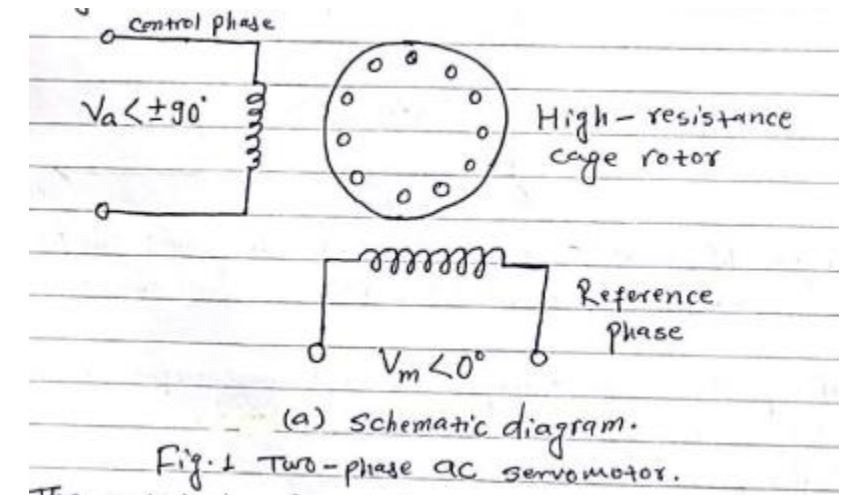 control phase
Va<±90°
High-resistance
cage rotor
Reference
phase
Vm<0°
(a) schematic diagram.
Fig.1 Two-phase ac servomotor.